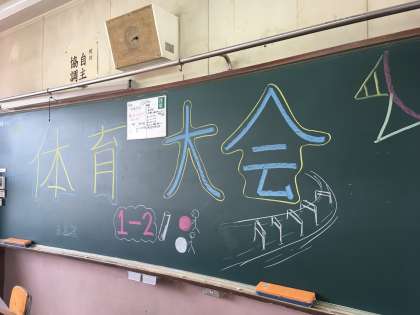 自主
協調
体育大会
1-2